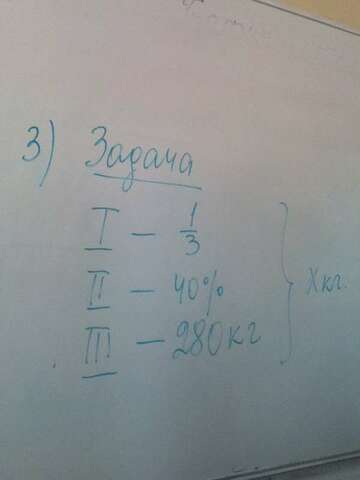 3) Задача
I – 1/3
II – 40%
III – 280кг
} Xкг.